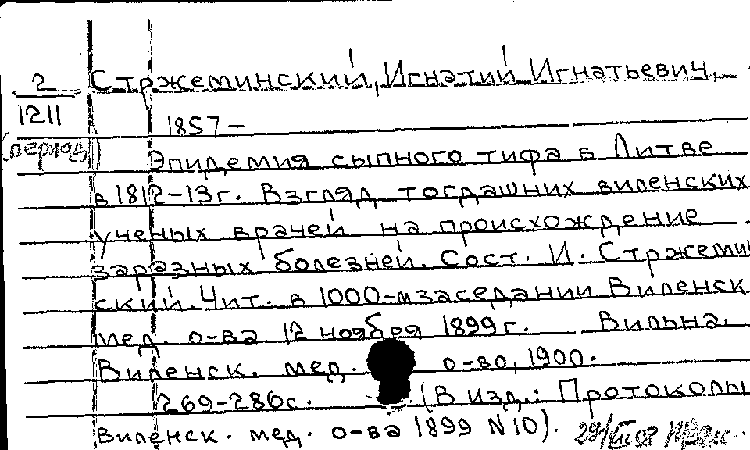 2 Стржеминский, Игнатий Игнатьевич,
1211 1857–
(период) Эпидемия сыпного тифа в Литве
в 1812-13г. Взгляд тогдашних виленских
ученых врачей на происхождение
заразных болезней. Сост. И. Стржемин
ский. Чит. в 1000-м заседании Виленск
мед. о-ва 12 ноября 1899 г. Вильна.
Виленск. мед. о-во, 1900.
269-286с. (В изд.: Протоколы
Виленск. мед. о-ва 1899 N10).